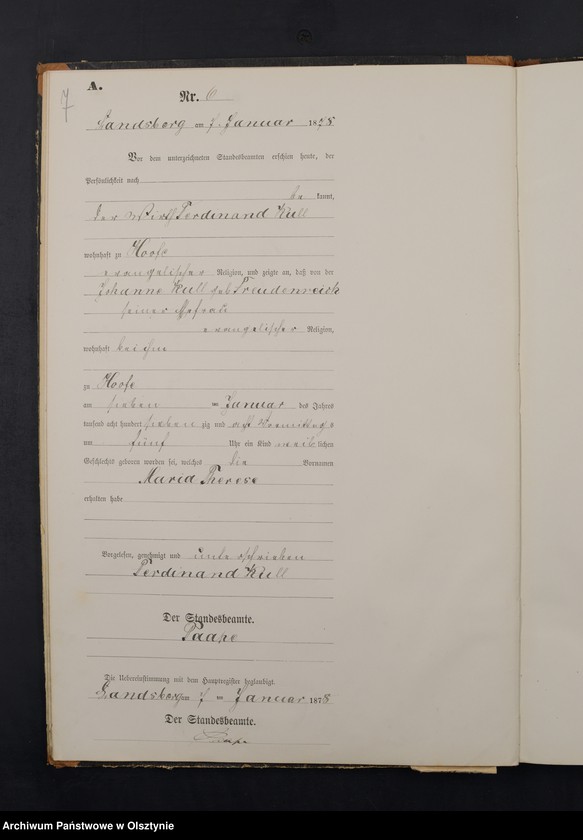 A.
7
Nr. 6
Landsberg am 7. Januar 1878
Vor dem unterzeichneten Standesbeamten erschien heute, der
Persönlichkeit nach
be kannt,
der Wirth Ferdinand Kull
wohnhaft zu Hoofe
evangelischer Religion, und zeigte an, daß von der
Johanne Kull geb Freudenreich
seiner Ehefrau
evangelischer Religion,
wohnhaft bei ihm
zu Hoofe
am sieben ten Januar des Jahres
tausend acht hundert sieben zig und acht Vormittags
um fünf Uhr ein Kind weib lichen
Geschlechts geboren worden sei, welches die Vornamen
Maria Therese
erhalten habe
Vorgelesen, genehmigt und unterschrieben
Ferdinand Kull
Der Standesbeamte.
Paape
Die Uebereinstimmung mit dem Hauptregister beglaubigt.
Landsberg am 7 ten Januar 1878
Der Standesbeamte.
Paape
Archiwum Państwowe w Olsztynie